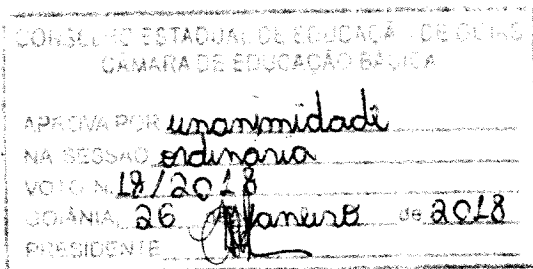 CONSELHO ESTADUAL DE EDUCAÇÃO DE GOIÁS
CÂMARA DE EDUCAÇÃO BÁSICA
APROVA POR unanimidade
NA SESSÃO ordinaria
VOTO N. 18/2018
GOIÂNIA, 26 Janeiro de 2018
PRESIDENTE